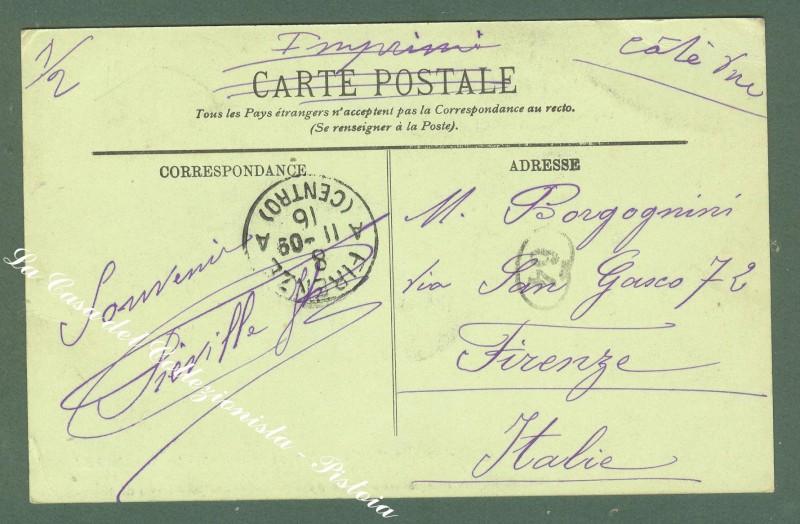 1/2
Imprimé
Côté vue
CARTE POSTALE
Tous les Pays étrangers n'acceptent pas la Correspondance au recto.
(Se renseigner à la Poste).
CORRESPONDANCE
ADRESSE
Souvenir
FIRENZE A
(CENTRO)
16
11
8
09
M. Borgognini
Via San Gasco 72
Firenze
Italie
La Casa del Collezionista - Pistoia